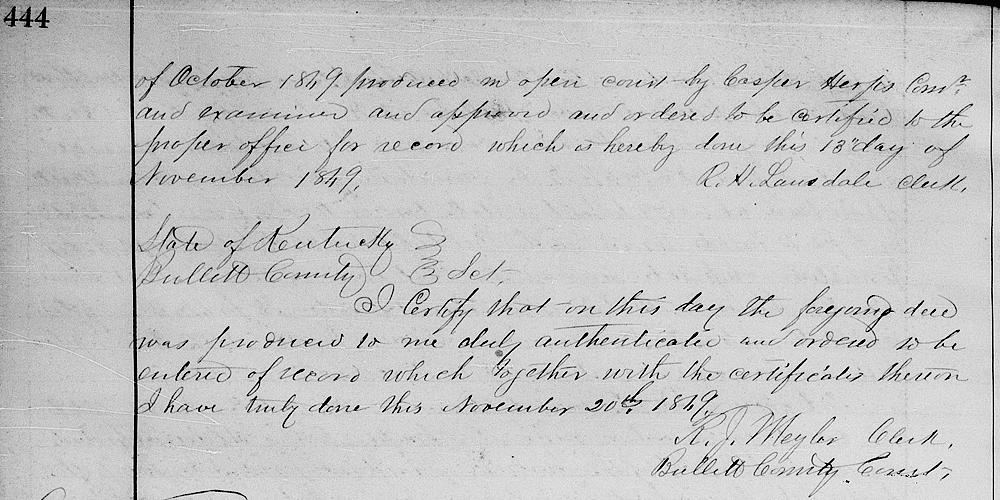 444
of October 1849. produced in open court by Casper Herps Comr.
and examined and approved and ordered to be certified to the
proper office for record which is hereby done this 13th day of
November 1849.
R. H. Lansdale Clerk.
State of Kentucky
Bullitt County Sct.
I Certify that on this day the foregoing deed
was produced to me duly authenticated and ordered to be
entered of record which together with the certificates thereon
I have truly done this November 20th 1849.
R. J. Meyler Clerk.
Bullitt County Court,